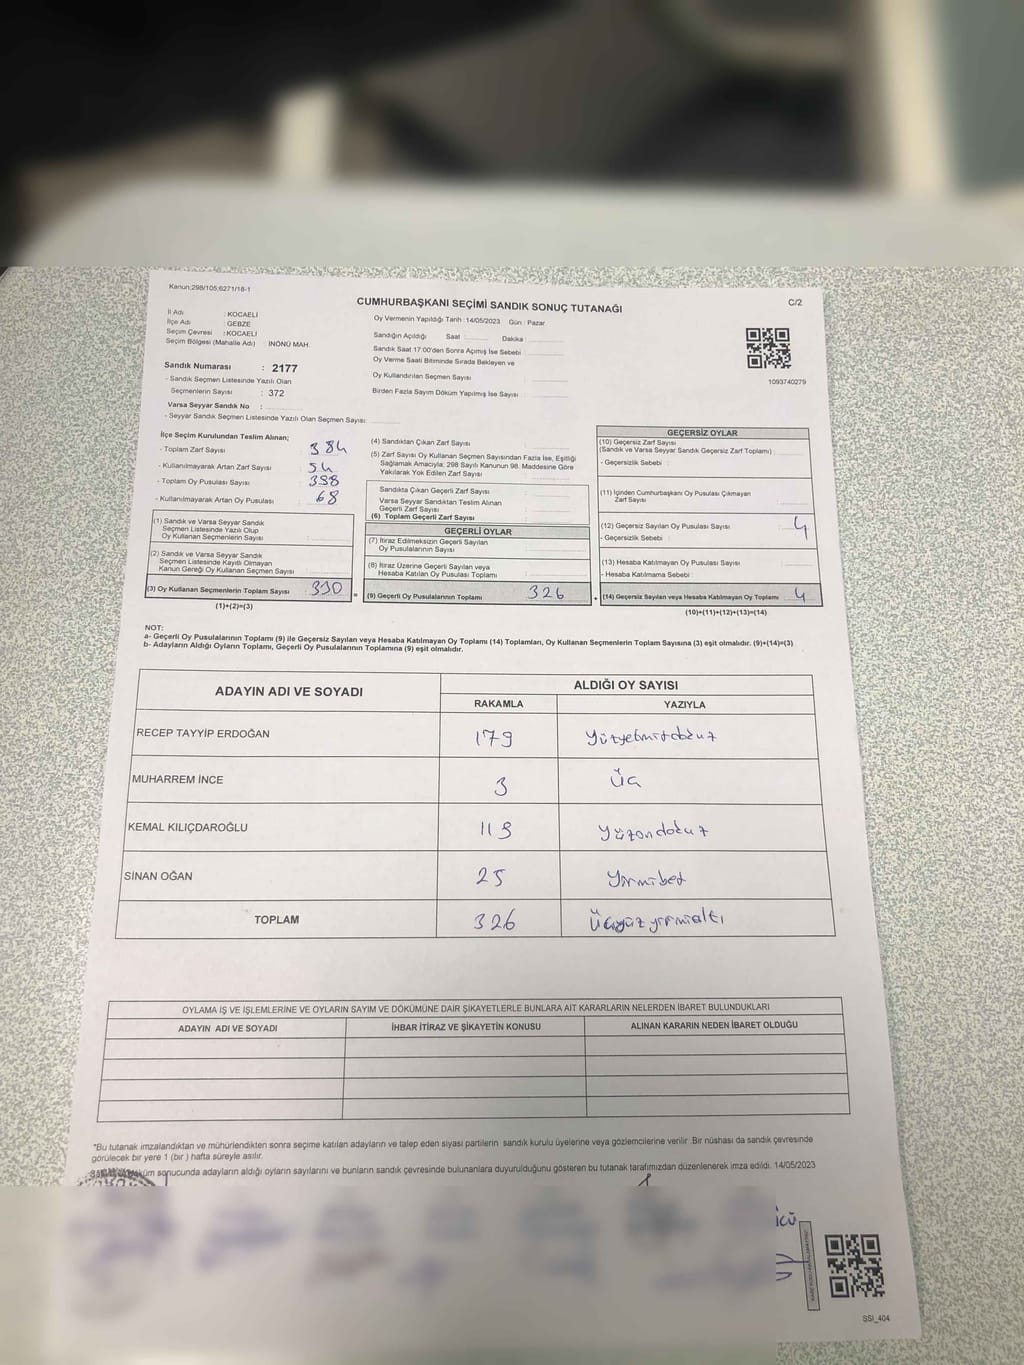 Kanun;298/105;6271/18-1
C/2
CUMHURBAŞKANI SEÇİMİ SANDIK SONUÇ TUTANAĞI
İl Adı : KOCAELİ
İlçe Adı : GEBZE
Seçim Çevresi : KOCAELİ
Seçim Bölgesi (Mahalle Adı) : İNÖNÜ MAH.
Sandık Numarası : 2177
- Sandık Seçmen Listesinde Yazılı Olan
Seçmenlerin Sayısı : 372
Varsa Seyyar Sandık No :
- Seyyar Sandık Seçmen Listesinde Yazılı Olan Seçmen Sayısı:
Oy Vermenin Yapıldığı Tarih :14/05/2023 Gün : Pazar
Sandığın Açıldığı Saat Dakika :
Sandık Saat 17:00'den Sonra Açımış İse Sebebi :
Oy Verme Saati Bitiminde Sırada Bekleyen ve
Oy Kullandırılan Seçmen Sayısı :
Birden Fazla Sayım Döküm Yapılmış İse Sayısı :
1093740279
İlçe Seçim Kurulundan Teslim Alınan;
- Toplam Zarf Sayısı 384
- Kullanılmayarak Artan Zarf Sayısı 54
- Toplam Oy Pusulası Sayısı 398
- Kullanılmayarak Artan Oy Pusulası 68
(1) Sandık ve Varsa Seyyar Sandık
Seçmen Listesinde Yazılı Olup
Oy Kullanan Seçmenlerin Sayısı :
(2) Sandık ve Varsa Seyyar Sandık
Seçmen Listesinde Kayıtlı Olmayan
Kanun Gereği Oy Kullanan Seçmen Sayısı :
(3) Oy Kullanan Seçmenlerin Toplam Sayısı 330 =
(1)+(2)=(3)
(4) Sandıktan Çıkan Zarf Sayısı :
(5) Zarf Sayısı Oy Kullanan Seçmen Sayısından Fazla İse, Eşitliği
Sağlamak Amacıyla, 298 Sayılı Kanunun 98. Maddesine Göre
Yakılarak Yok Edilen Zarf Sayısı :
Sandıkta Çıkan Geçerli Zarf Sayısı :
Varsa Seyyar Sandıktan Teslim Alınan
Geçerli Zarf Sayısı :
(6) Toplam Geçerli Zarf Sayısı
GEÇERLİ OYLAR
(7) İtiraz Edilmeksizin Geçerli Sayılan
Oy Pusulalarının Sayısı :
(8) İtiraz Üzerine Geçerli Sayılan veya
Hesaba Katılan Oy Pusulası Toplamı :
(9) Geçerli Oy Pusulalarının Toplamı 326 +
GEÇERSİZ OYLAR
(10) Geçersiz Zarf Sayısı
(Sandık ve Varsa Seyyar Sandık Geçersiz Zarf Toplamı) :
- Geçersizlik Sebebi :
(11) İçinden Cumhurbaşkanı Oy Pusulası Çıkmayan
Zarf Sayısı :
(12) Geçersiz Sayılan Oy Pusulası Sayısı : 4
- Geçersizlik Sebebi :
(13) Hesaba Katılmayan Oy Pusulası Sayısı :
- Hesaba Katılmama Sebebi :
(14) Geçersiz Sayılan veya Hesaba Katılmayan Oy Toplamı 4
(10)+(11)+(12)+(13)=(14)
NOT:
a- Geçerli Oy Pusulalarının Toplamı (9) ile Geçersiz Sayılan veya Hesaba Katılmayan Oy Toplamı (14) Toplamları, Oy Kullanan Seçmenlerin Toplam Sayısına (3) eşit olmalıdır. (9)+(14)=(3)
b- Adayların Aldığı Oyların Toplamı, Geçerli Oy Pusulalarının Toplamına (9) eşit olmalıdır.
ADAYIN ADI VE SOYADI ALDIĞI OY SAYISI
RAKAMLA YAZIYLA
RECEP TAYYİP ERDOĞAN 179 Yüzyetmişdokuz
MUHARREM İNCE 3 Üç
KEMAL KILIÇDAROĞLU 119 Yüzondokuz
SİNAN OĞAN 25 Yirmibeş
TOPLAM 326 Üçyüzyirmialtı
OYLAMA İŞ VE İŞLEMLERİNE VE OYLARIN SAYIM VE DÖKÜMÜNE DAİR ŞİKAYETLERLE BUNLARA AİT KARARLARIN NELERDEN İBARET BULUNDUKLARI
ADAYIN ADI VE SOYADI İHBAR İTİRAZ VE ŞİKAYETİN KONUSU ALINAN KARARIN NEDEN İBARET OLDUĞU
*Bu tutanak imzalandıktan ve mühürlendikten sonra seçime katılan adayların ve talep eden siyasi partilerin sandık kurulu üyelerine veya gözlemcilerine verilir .Bir nüshası da sandık çevresinde
görülecek bir yere 1 (bir ) hafta süreyle asılır.
sonucunda adayların aldığı oyların sayılarını ve bunların sandık çevresinde bulunanlara duyurulduğunu gösteren bu tutanak tarafımızdan düzenlenerek imza edildi. 14/05/2023
SSİ_404